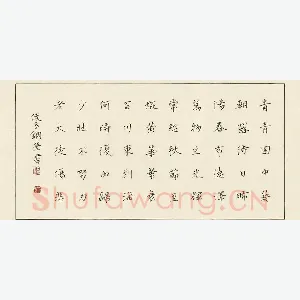 青青園中葵
朝露待日晞
陽春布德澤
萬物生光輝
常恐秋節至
焜黃華葉衰
百川東到海
何時復西歸
少壯不努力
老大徒傷悲
書
Shufawang.CN